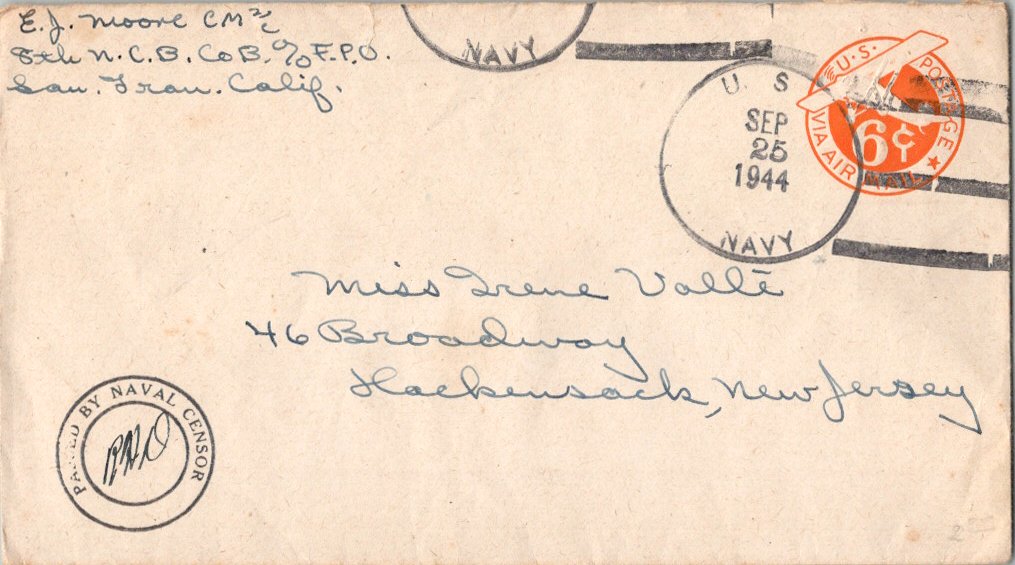 E. J. Moore CM 2/c
8th N.C.B. Co B. c/o F.P.O.
San. Fran. Calif.
NAVY
U. S.
SEP
25
1944
NAVY
U.S. POSTAGE
6¢
VIA AIR MAIL
Miss Irene Vallé
46 Broadway
Hackensack, New Jersey
PASSED BY NAVAL CENSOR